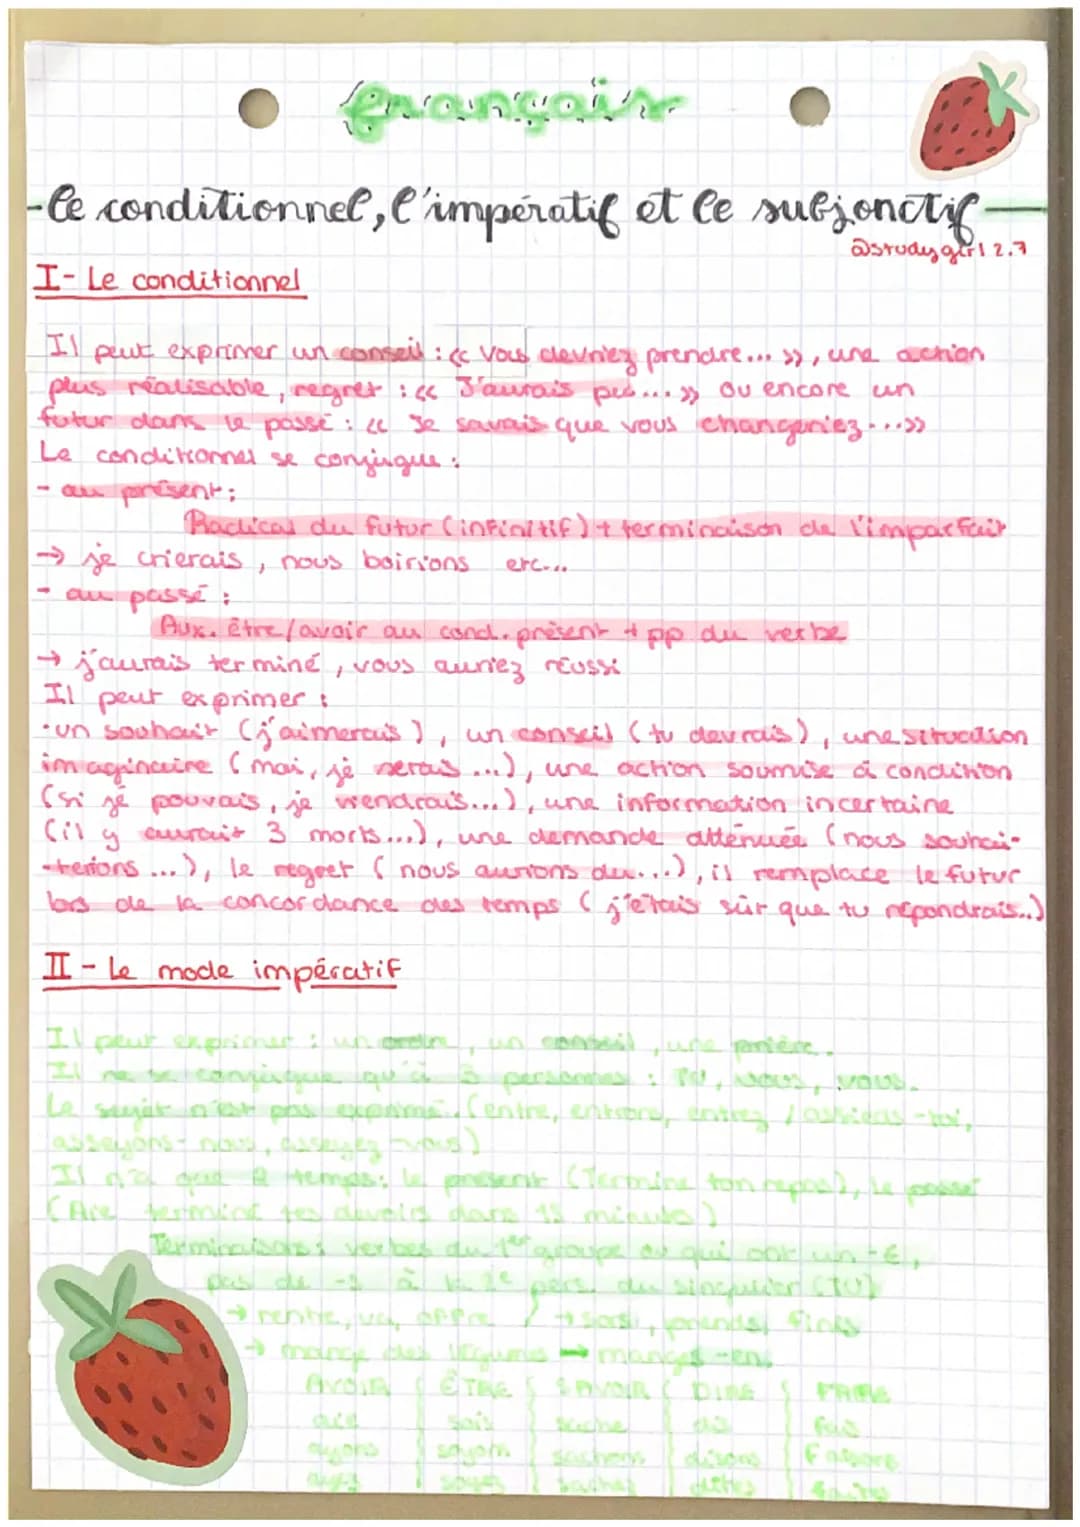 français
-le conditionnel, l'impératif et le subjonctif-
@studygirl2.7
I- Le conditionnel
Il peut exprimer un conseil : « Vous devriez prendre... », une action
plus réalisable, regret : « J'aurais pu... » ou encore un
futur dans le passé : « Je savais que vous changeriez...»
Le conditionnel se conjugue :
- au présent :
Radical du futur (infinitif) + terminaison de l'imparfait
→ je crierais, nous boirions etc...
- au passé :
Aux. être/avoir au cond. présent + pp du verbe
→ j'aurais terminé, vous auriez réussi
Il peut exprimer :
·un souhait (j'aimerais), un conseil (tu devrais), une situation
imaginaire (moi, je serais ...), une action soumise à condition
(si je pouvais, je viendrais...), une information incertaine
(il y aurait 3 morts...), une demande atténuée (nous souhai-
-terions ...), le regret (nous aurions du...), il remplace le futur
lors de la concordance des temps (j'étais sûr que tu répondrais..)
II - Le mode impératif
Il peut exprimer : un ordre, un conseil, une prière.
Il ne se conjugue qu'à 3 personnes : TU, vous.
Le sujet n'est pas exprimé. (entre, entrons, entrez / assieds-toi,
asseyons-nous, asseyez-vous)
Il n'a que 2 temps: le présent (Termine ton repas), le passé
(Aie terminé tes devoirs dans 15 minutes)
Terminaisons : verbes du 1er groupe ou qui ont un -E,
pas de -s à la 2e pers. du singulier (TU)
→ rentre, va, / → sors, prends, finis
→ mange des légumes → manges-en
AVOIR ÊTRE SAVOIR DIRE FAIRE
aie sois sache dis fais
ayons soyons sachons disons faisons
ayez soyez sachez dites faites